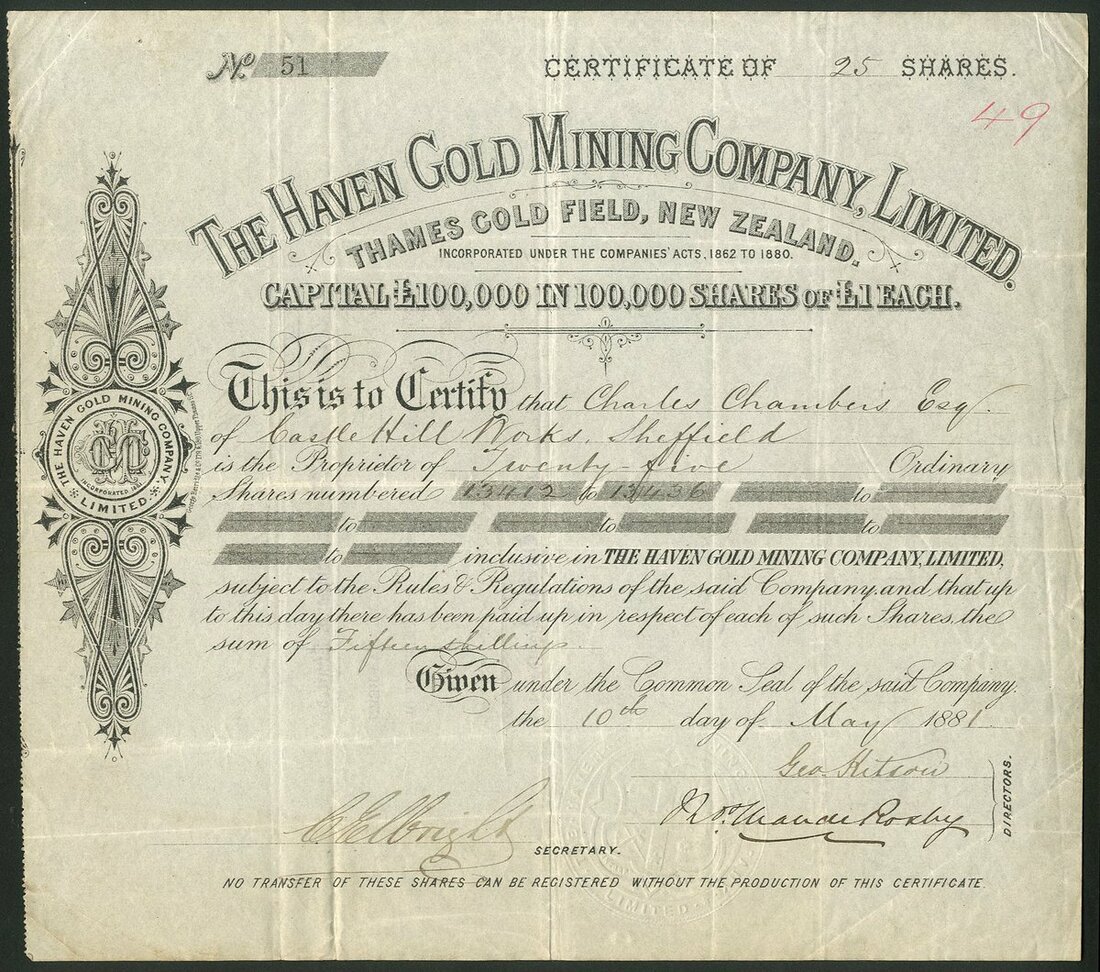 No 51
CERTIFICATE OF 25 SHARES.
49
THE HAVEN GOLD MINING COMPANY, LIMITED.
THAMES GOLD FIELD, NEW ZEALAND.
INCORPORATED UNDER THE COMPANIES' ACTS, 1862 TO 1880.
CAPITAL £100,000 IN 100,000 SHARES OF £1 EACH.
THE HAVEN GOLD MINING COMPANY,
LIMITED.
This is to Certify that Charles Chambers Esq.
of Castle Hill Works, Sheffield
is the Proprietor of Twenty-five Ordinary
Shares numbered 13412 to 13436 to
to to to
to inclusive in THE HAVEN GOLD MINING COMPANY, LIMITED,
subject to the Rules & Regulations of the said Company, and that up
to this day there has been paid up in respect of each of such Shares, the
sum of Fifteen shillings
Given under the Common Seal of the said Company,
the 10th day of May 1881
Geo. Kitson
DIRECTORS.
SECRETARY.
NO TRANSFER OF THESE SHARES CAN BE REGISTERED WITHOUT THE PRODUCTION OF THIS CERTIFICATE.